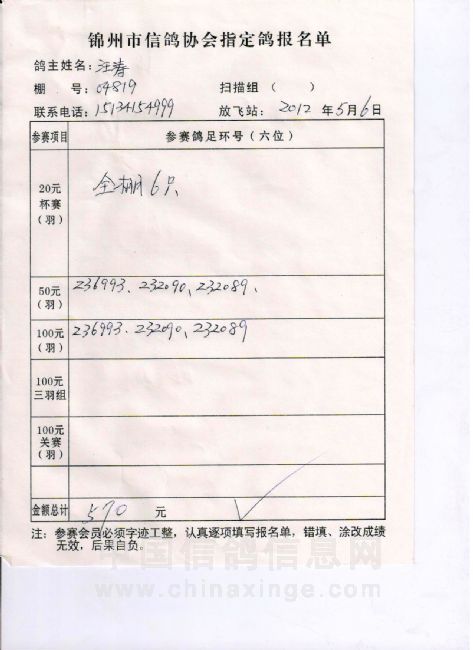 锦州市信鸽协会指定鸽报名单
鸽主姓名：汪春
棚 号：04819 扫描组（ ）
联系电话：15134154999 放飞站：2012年5月6日
参赛项目 参赛鸽足环号（六位）
20元
杯赛
（羽）
全棚6只
50元
（羽）
236993、232090、232089、
100元
（羽）
236993、232090、232089
100元
三羽组
100元
关赛
（羽）
金额总计 570 元
注：参赛会员必须字迹工整，认真逐项填写报名单，错填、涂改成绩
无效，后果自负。
中国信鸽信息网
www.chinaxinge.com